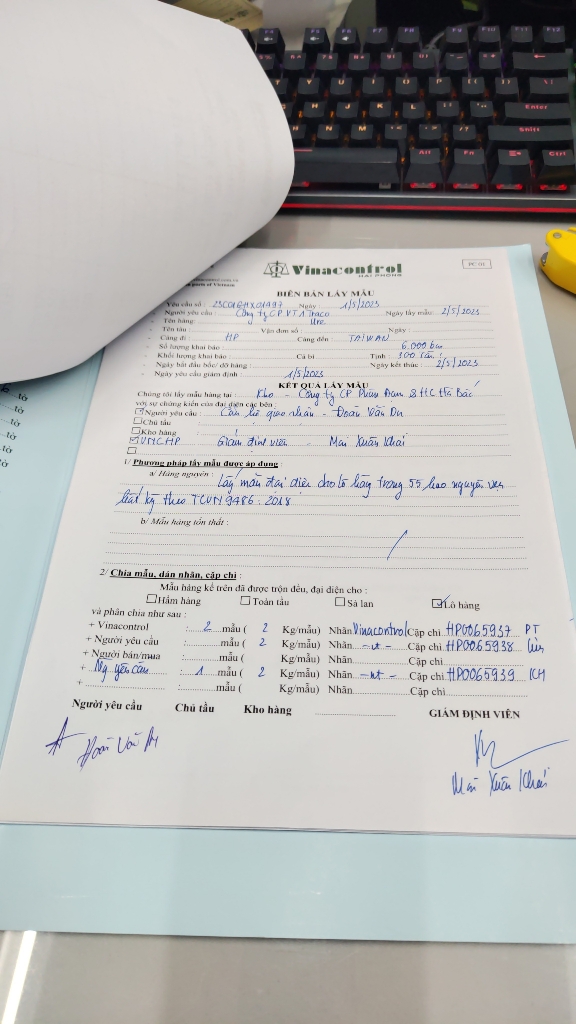 Vinacontrol
HẢI PHÒNG
PC 01
BIÊN BẢN LẤY MẪU
Yêu cầu số : Ngày : 1/5/2023
Người yêu cầu : Công ty CP VT 1 Traco Ngày lấy mẫu: 2/5/2023
Tên hàng: Ure
Tên tàu : Vận đơn số : Ngày :
Cảng đi : HP Cảng đến : TAIWAN
Số lượng khai báo : 6.000 bao
Khối lượng khai báo : Cả bì Tịnh : 300 tấn
Ngày bắt đầu bốc/ dỡ hàng : Ngày kết thúc : 2/5/2023
Ngày yêu cầu giám định : 1/5/2023
KẾT QUẢ LẤY MẪU
Chúng tôi lấy mẫu hàng tại : Kho - Công ty CP Phân Đạm & HC Hà Bắc
với sự chứng kiến của đại diện các bên :
Người yêu cầu : Cán bộ giao nhận - Đoàn Văn Du
Chủ tầu :
Kho hàng :
VNCHP Giám định viên - Mai Xuân Khải
1/ Phương pháp lấy mẫu được áp dụng :
a/ Hàng nguyên : Lấy mẫu đại diện cho lô hàng trong 55 bao nguyên vẹn
bất kỳ theo TCVN 9486 : 2018
b/ Mẫu hàng tổn thất :
2/ Chia mẫu, dán nhãn, cặp chì :
Mẫu hàng kể trên đã được trộn đều, đại diện cho :
Hầm hàng Toàn tầu Sà lan Lô hàng
và phân chia như sau :
+ Vinacontrol : 2 mẫu ( 2 Kg/mẫu) Nhãn Vinacontrol Cặp chì HP0065937 PT
+ Người yêu cầu : mẫu ( 2 Kg/mẫu) Nhãn -nt- Cặp chì HP0065938 Lưu
+ Người bán/mua : mẫu ( Kg/mẫu) Nhãn Cặp chì
+ Ng yêu cầu : 1 mẫu ( 2 Kg/mẫu) Nhãn -nt- Cặp chì HP0065939 KH
+ mẫu ( Kg/mẫu) Nhãn Cặp chì
Người yêu cầu Chủ tầu Kho hàng GIÁM ĐỊNH VIÊN
Mai Xuân Khải